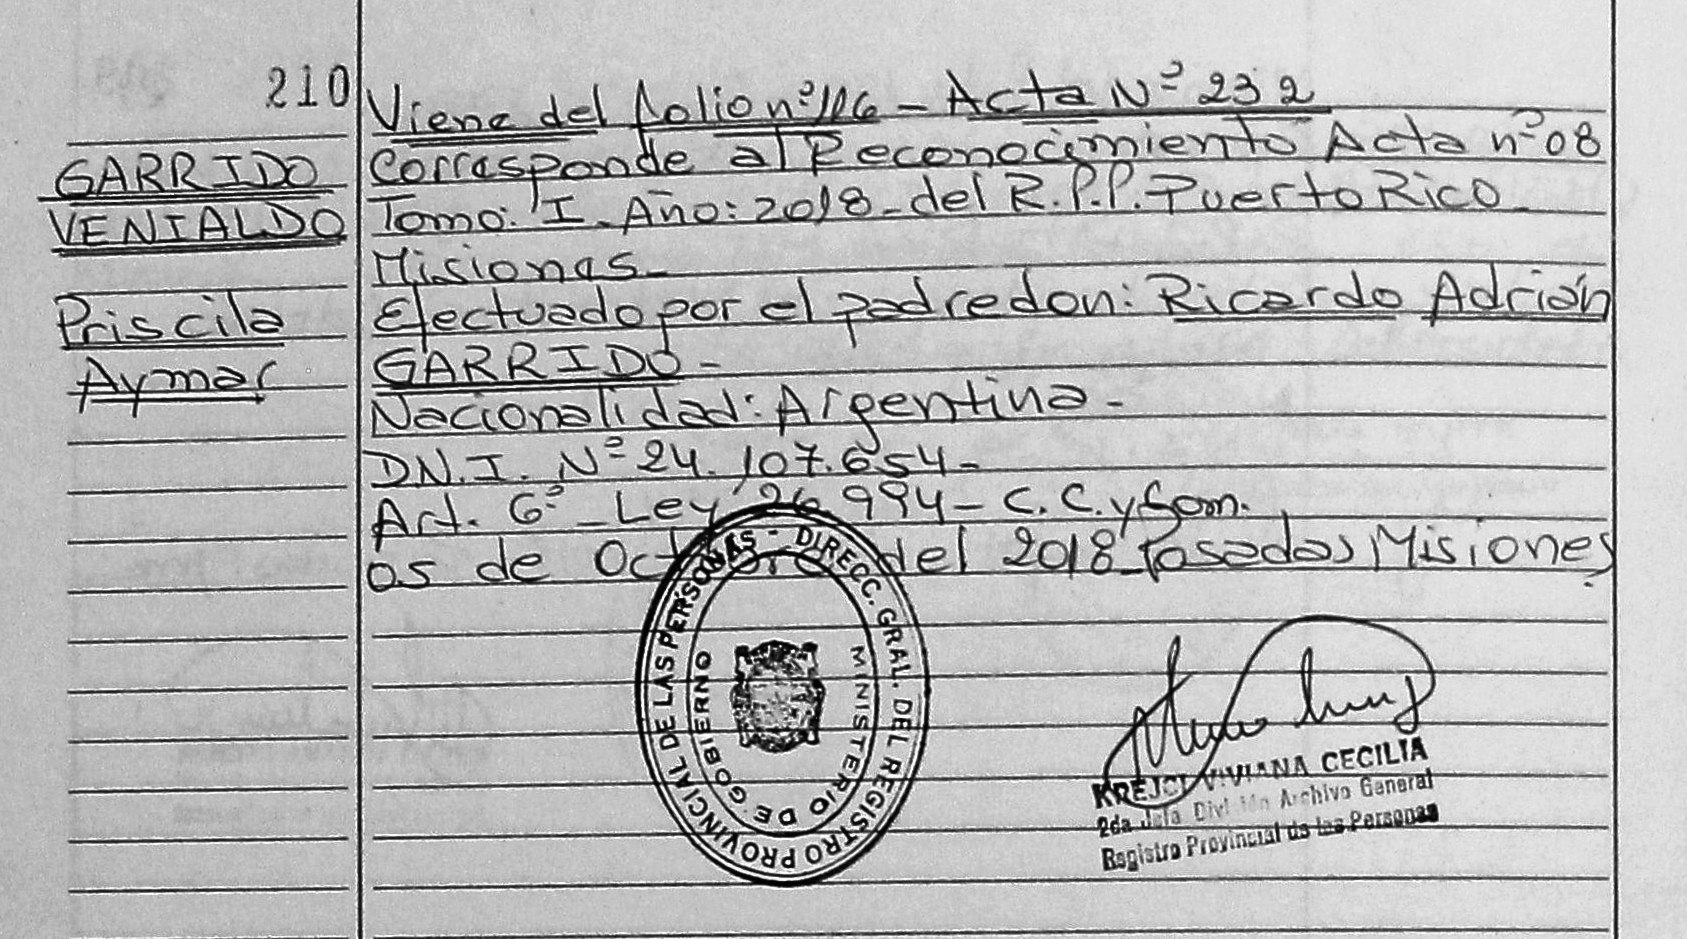 210
GARRIDO
VENIALDO
Priscila
Aymar
Viene del folio nº 116 - Acta Nº 232
Corresponde al Reconocimiento Acta nº 08
Tomo: I - Año: 2018 - del R.P.P. Puerto Rico -
Misiones -
Efectuado por el padre don: Ricardo Adrián
GARRIDO -
Nacionalidad: Argentina -
D.N.I. Nº 24.107.654 -
Art. 6º - Ley 26.994 - C.C. y Com.
05 de Octubre del 2018 - Posadas Misiones.
REGISTRO PROVINCIAL DE LAS PERSONAS - DIRECC. GRAL. DEL
MINISTERIO DE GOBIERNO
KREJCI VIVIANA CECILIA
2da Jefa División Archivo General
Registro Provincial de las Personas